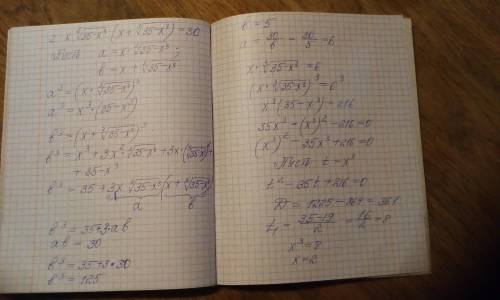 2 x·∛(35-x³)·(x+∛(35-x³))=30
Пусть a = x·∛(35-x³) ;
b = x+∛(35-x³)
a³=(x·∛(35-x³))³
a³=x³·(35-x³)
b³=(x+∛(35-x³))³
b³=x³+3x²·∛(35-x³)+3x·(∛(35-x³))²+
+35-x³
b³=35+3x·∛(35-x³)·(x+∛(35-x³))
a b
b³=35+3·ab
ab=30
b³=35+3·30
b³=125
b=5
a=30/b=30/5=6
x·∛(35-x³)=6
(x·∛(35-x³))³=6³
x³(35-x³)=216
35x³-(x³)²-216=0
(x³)²-35x³+216=0
Пусть t=x³
t²-35t+216=0
D=1225-864=361
t₁=(35-19)/2=16/2=8
x³=8
x=2